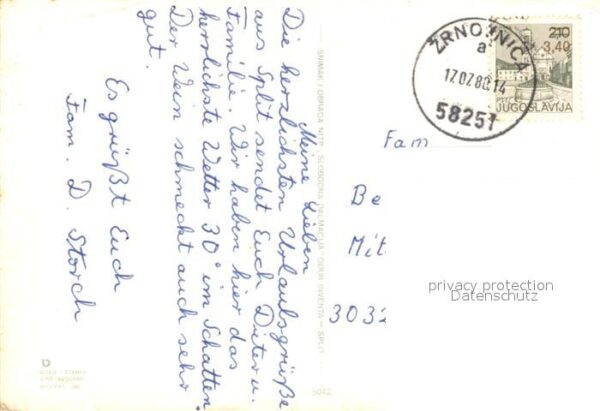 Meine Lieben
Die herzlichsten Urlaubsgrüße
aus Split sendet Euch Dieter u.
Familie. Wir haben hier das
herrlichste Wetter 30° im Schatten.
Der Wein schmeckt auch sehr
gut.
Es grüßt Euch
Fam. D. Storch
SNIMAK I OBRADA NITP "SLOBODNA DALMACIJA" OOUR INVENTA — SPLIT
5042
ŽRNOVNICA
a
17.07.80.14
58251
2,10
3,40
PTT
JUGOSLAVIJA
Fam
Be
Mit
3032
privacy protection
Datenschutz